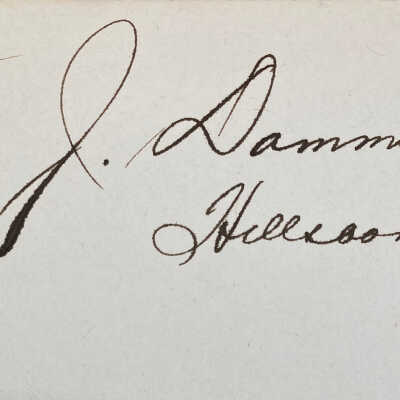 J. Damm
Hillsboo